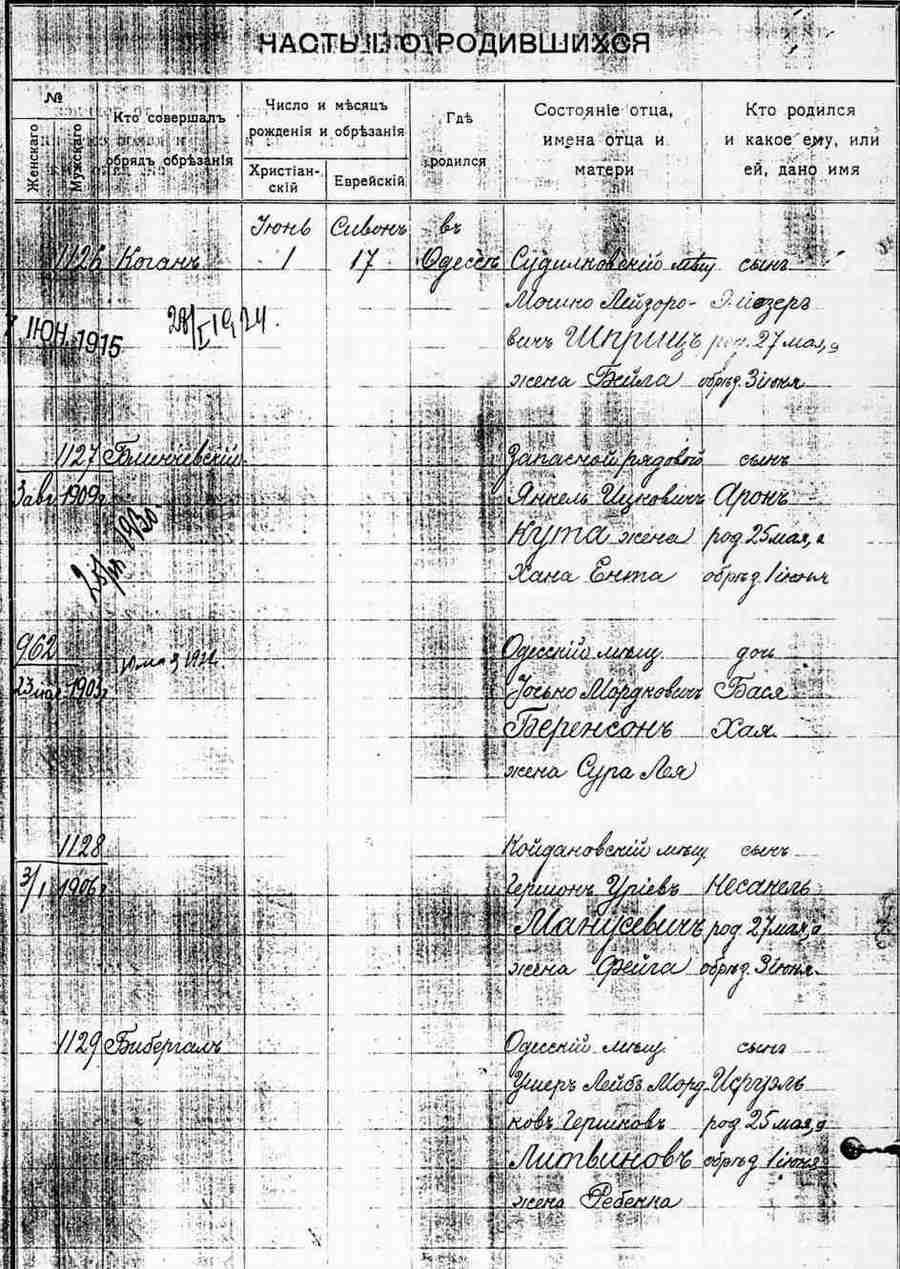 ЧАСТЬ I О РОДИВШИХСЯ
№
Женскаго
Мужскаго
Кто совершалъ
обрядъ обрѣзанія
Число и мѣсяцъ
рожденія и обрѣзанія
Христіан-
скій
Еврейскій
Гдѣ
родился
Состояніе отца,
имена отца и
матери
Кто родился
и какое ему, или
ей, дано имя
Іюнь Сивонъ въ
1126 Коганъ 1 17 Одессѣ Судилковскій мѣщ сынъ
Мошко Лейзоро-
ІЮН. 1915
28/I 1924.
вичъ Шприцъ род. 27 мая, а
жена Бейла обрѣз. 3 іюня
1127 Запасной рядовой сынъ
3 авг 1909 г Янкель Ицковичъ Аронъ
1930
Кута жена род 25 мая, а
Хана Ента обрѣз. 1 іюня
962 Одесскій мѣщ. дочь
23 1903 г Іосько Мордковичъ Бася
Беренсонъ Хая.
жена Сура Лея
1128 Койдановскій мѣщ сынъ
3/I 1906 г Гершонъ Уріевъ Несанель
Манусевичъ род 27 мая, а
жена Фейга обрѣз. 3 іюня.
1129 Бибергалъ Одесскій мѣщ. сынъ
Ушеръ Лейбъ Морд- Исруэль
ковъ Гершковъ род 25 мая, а
Литвиновъ обрѣз. 1 іюня
жена Ребекка